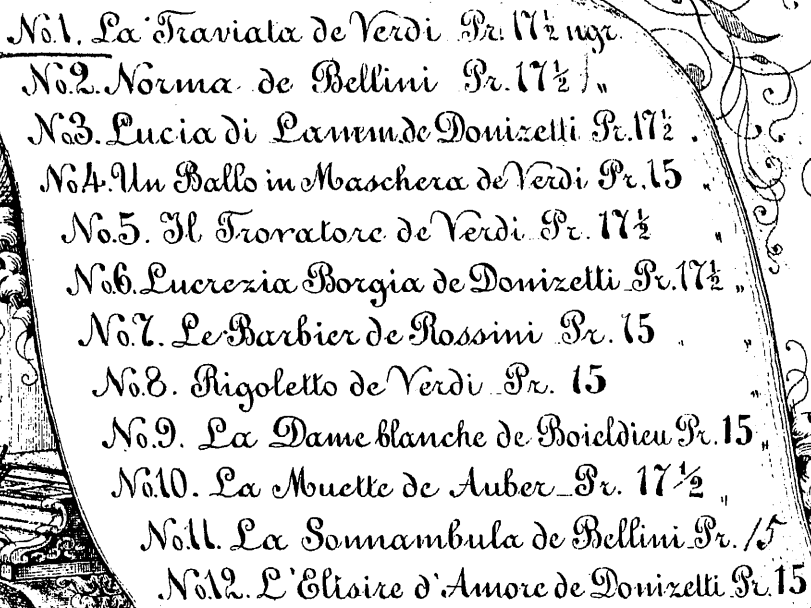 No.1. La Traviata de Verdi Pr. 17½ ngr.
No.2. Norma de Bellini Pr. 17½ "
No.3. Lucia di Lamm. de Donizetti Pr. 17½ "
No.4. Un Ballo in Maschera de Verdi Pr. 15 "
No.5. Il Trovatore de Verdi Pr. 17½ "
No.6. Lucrezia Borgia de Donizetti Pr. 17½ "
No.7. Le Barbier de Rossini Pr. 15 "
No.8. Rigoletto de Verdi Pr. 15 "
No.9. La Dame blanche de Boieldieu Pr. 15 "
No.10. La Muette de Auber Pr. 17½ "
No.11. La Sonnambula de Bellini Pr. 15
No.12. L'Elisire d'Amore de Donizetti Pr. 15